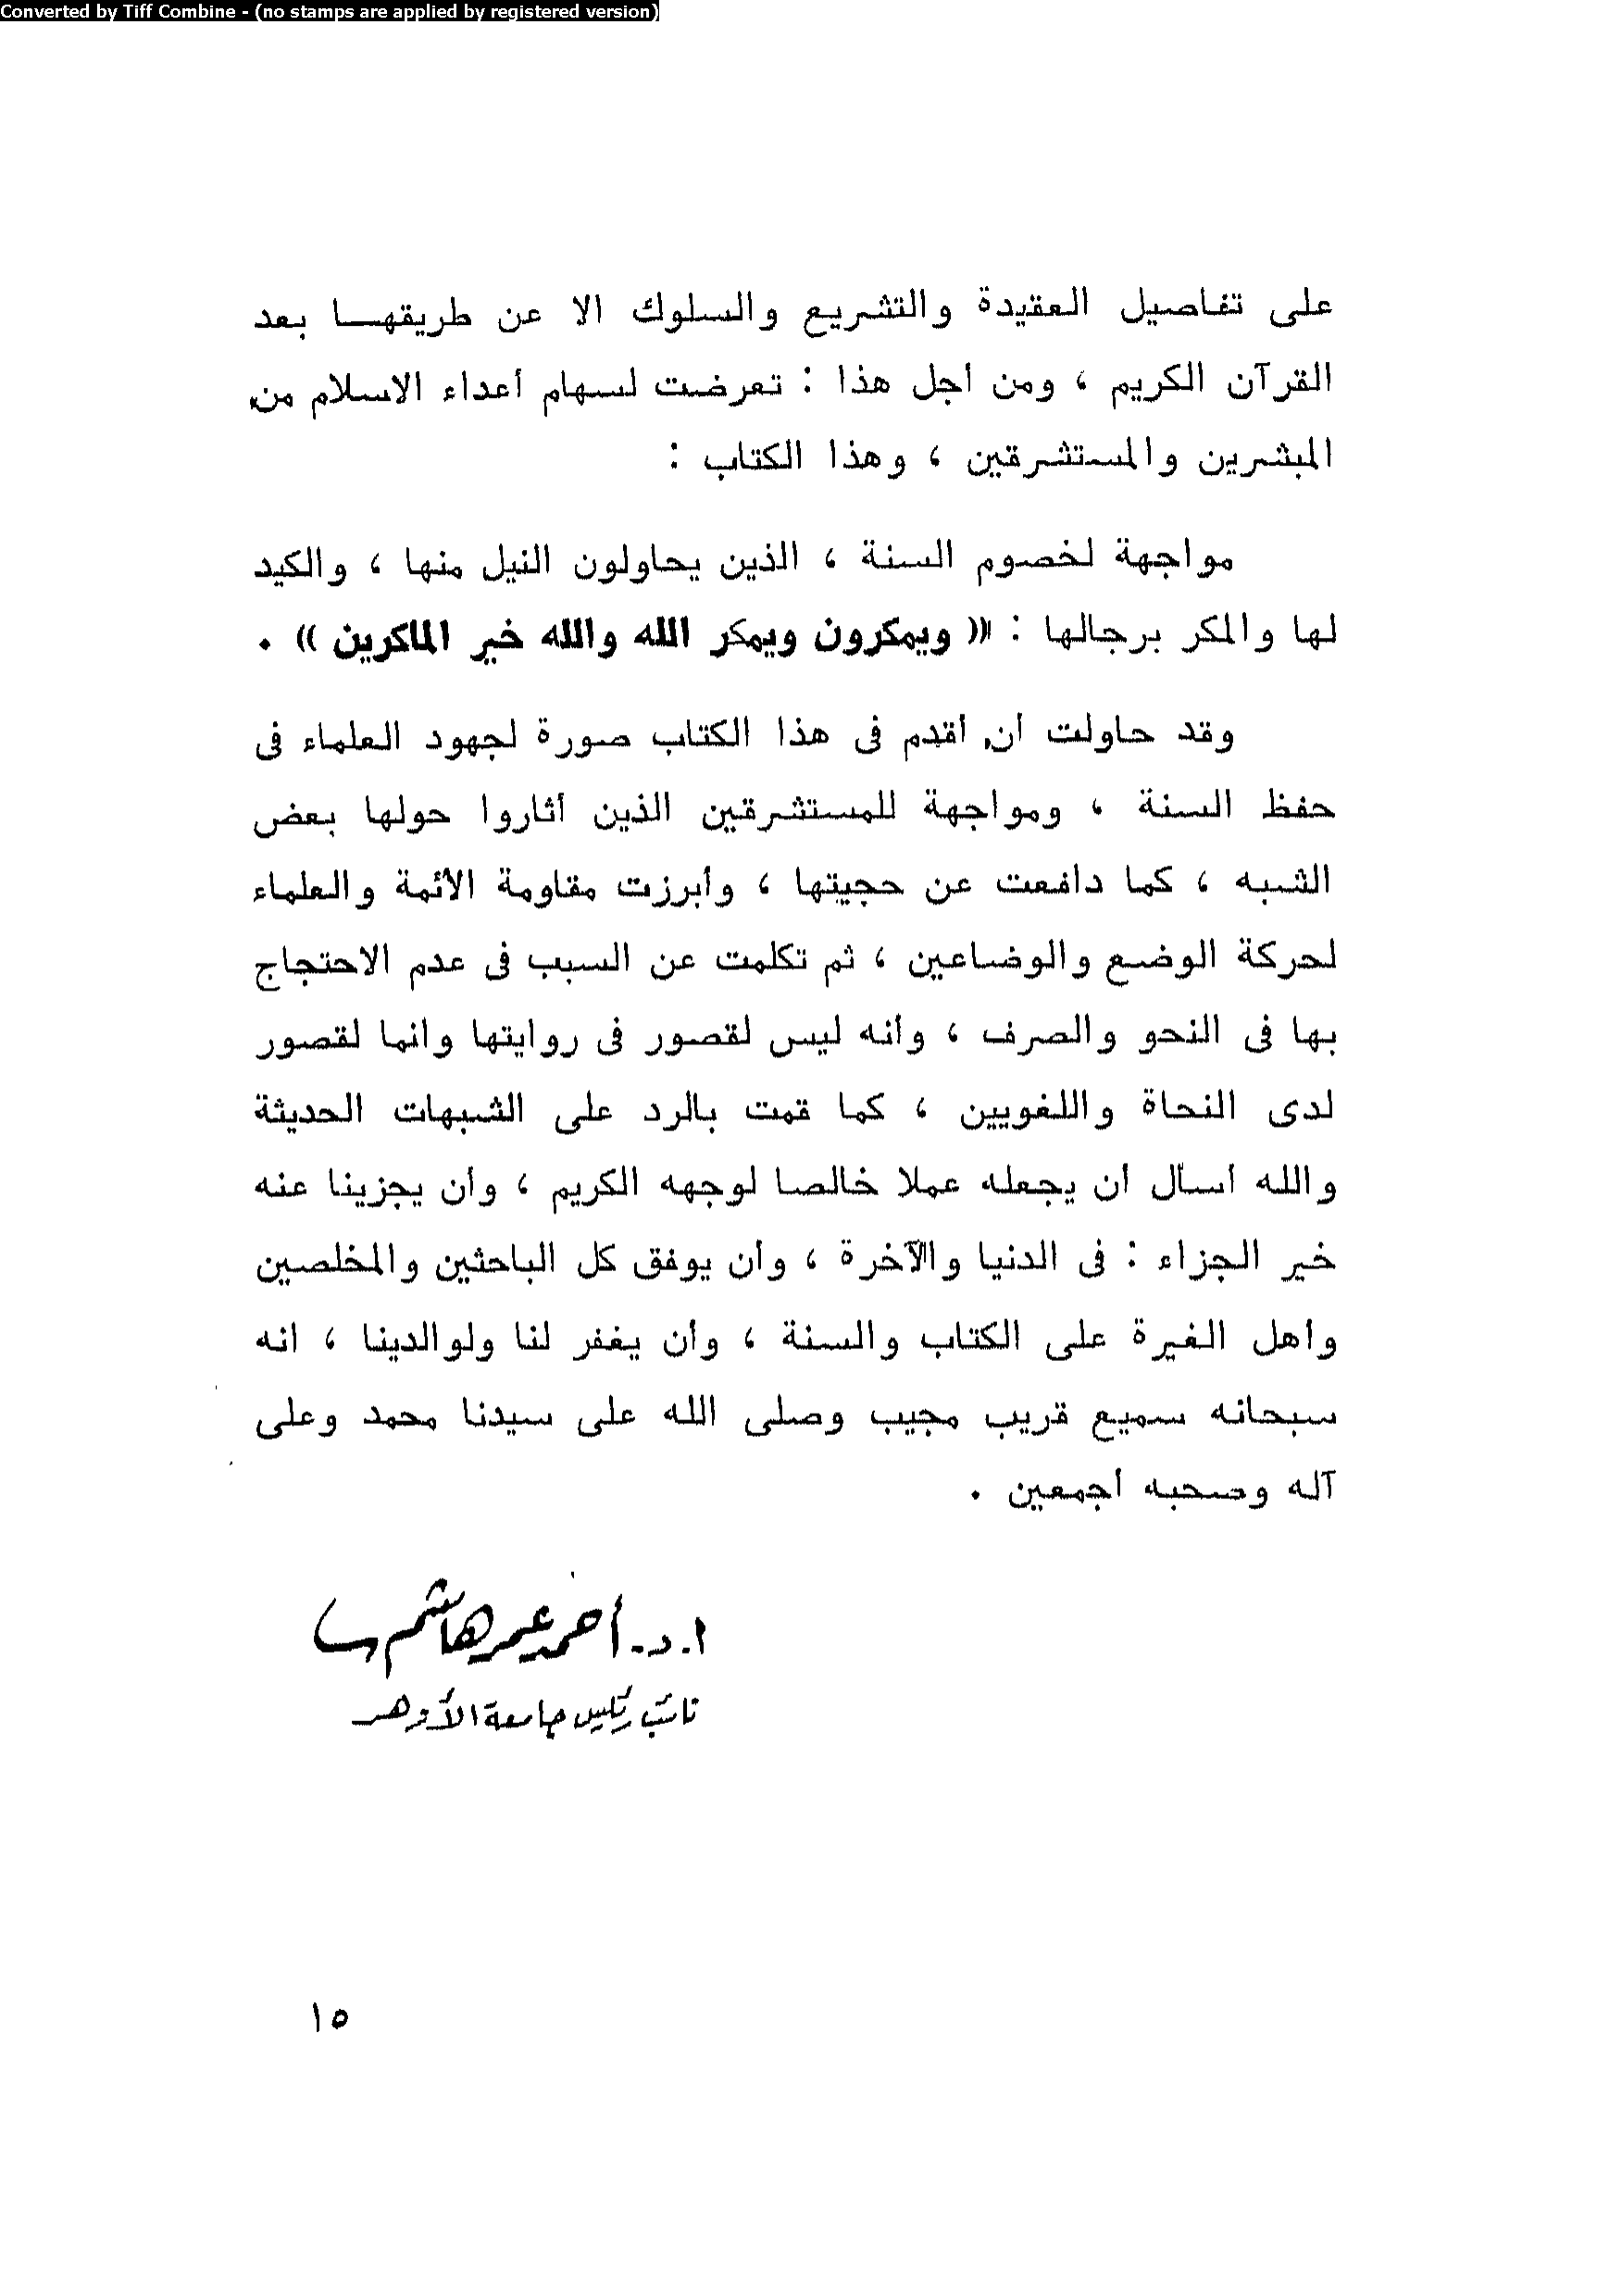 Converted by Tiff Combine - (no stamps are applied by registered version)
على تفاصيل العقيدة والتشريع والسلوك الا عن طريقهـــا بعد
القرآن الكريم ، ومن أجل هذا : تعرضت لسهام أعداء الاسلام من
المبشرين والمستشرقين ، وهذا الكتاب :
مواجهة لخصوم السنة ، الذين يحاولون النيل منها ، والكيد
لها والمكر برجالها : (( ويمكرون ويمكر الله والله خير الماكرين )) .
وقد حاولت أن أقدم فى هذا الكتاب صورة لجهود العلماء فى
حفظ السنة ، ومواجهة للمستشرقين الذين أثاروا حولها بعض
الشبه ، كما دافعت عن حجيتها ، وأبرزت مقاومة الأئمة والعلماء
لحركة الوضع والوضاعين ، ثم تكلمت عن السبب فى عدم الاحتجاج
بها فى النحو والصرف ، وأنه ليس لقصور فى روايتها وانما لقصور
لدى النحاة واللغويين ، كما قمت بالرد على الشبهات الحديثة
والله أسأل أن يجعله عملا خالصا لوجهه الكريم ، وأن يجزينا عنه
خير الجزاء : فى الدنيا والآخرة ، وأن يوفق كل الباحثين والمخلصين
وأهل الغيرة على الكتاب والسنة ، وأن يغفر لنا ولوالدينا ، انه
سبحانه سميع قريب مجيب وصلى الله على سيدنا محمد وعلى
آله وصحبه أجمعين .
ا . د . أحمد عمر هاشم
نائب رئيس جامعة الأزهر
١٥